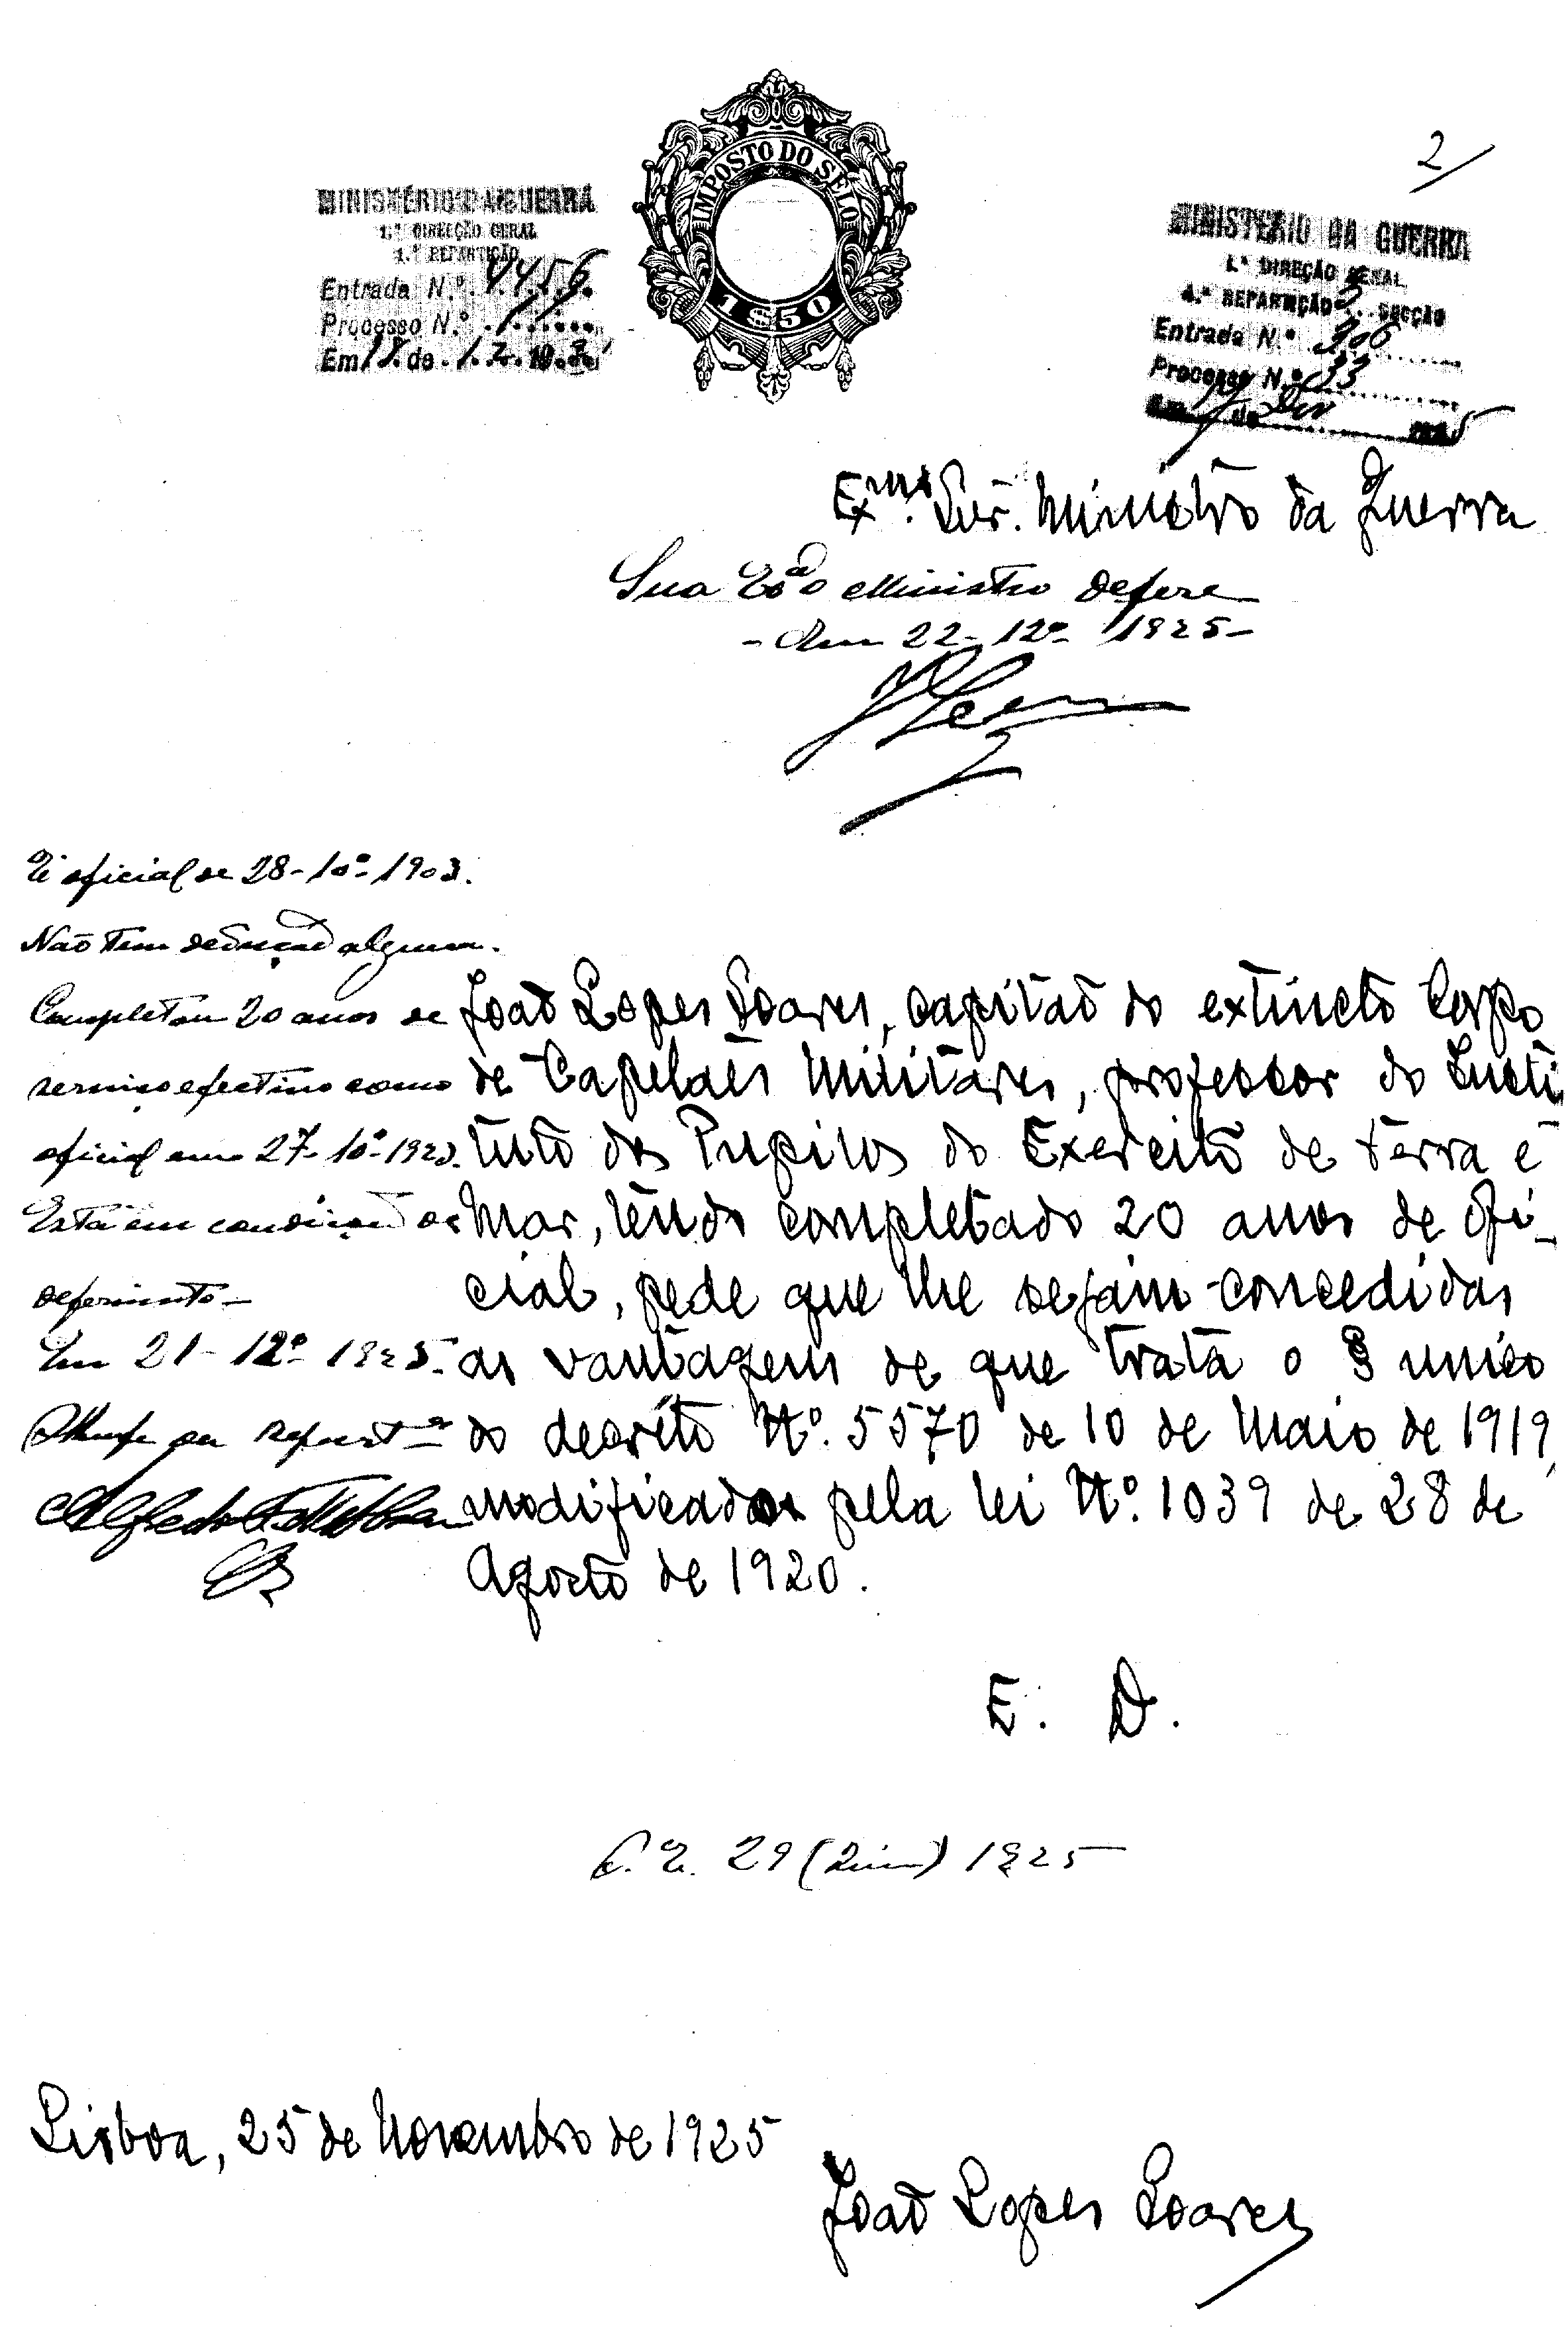 2
MINISTÉRIO DA GUERRA
1.ª DIRECÇÃO GERAL
1.ª REPARTIÇÃO
Entrada N.º 4456
Processo N.º
Em 18 de 12 19
IMPOSTO DO SELO
1$50
MINISTERIO DA GUERRA
1.ª DIREÇÃO GERAL
4.ª REPARTIÇÃO SECÇÃO
Entrada N.º 306
Processo N.º 33
de
Exmo. Snr. Ministro da Guerra
Sua Exa o Ministro defere
- Em 22-12º-1925-
É oficial de 28-10º-1903.
Não tem dedução alguma.
Completou 20 anos de
serviço efectivo como
oficial em 27-10º-1923.
Está em condições de
deferimento-
Em 21-12º-1925-
João Lopes Soares, capitão do extincto Corpo
de Capelães Militares, professor do Insti
tuto dos Pupilos do Exercito de terra e
mar, tendo completado 20 anos de ofi-
cial, pede que lhe sejam concedidas
as vantagens de que trata o § unico
do decreto Nº. 5570 de 10 de Maio de 1919,
modificado pela lei Nº. 1039 de 28 de
Agosto de 1920.
E. D.
29 1925
Lisboa, 25 de Novembro de 1925
João Lopes Soares